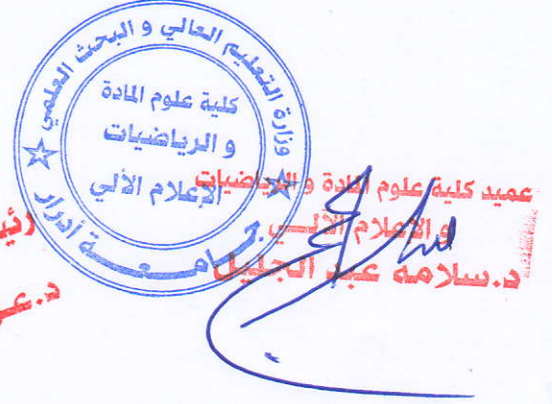 وزارة التعليم العالي و البحث العلمي
كلية علوم المادة
و الرياضيات
و الإعلام الآلي
جامعة أدرار
عميد كلية علوم المادة و الرياضيات
و الإعلام الآلي
د.سلامه عبد الجليل
د.عـ